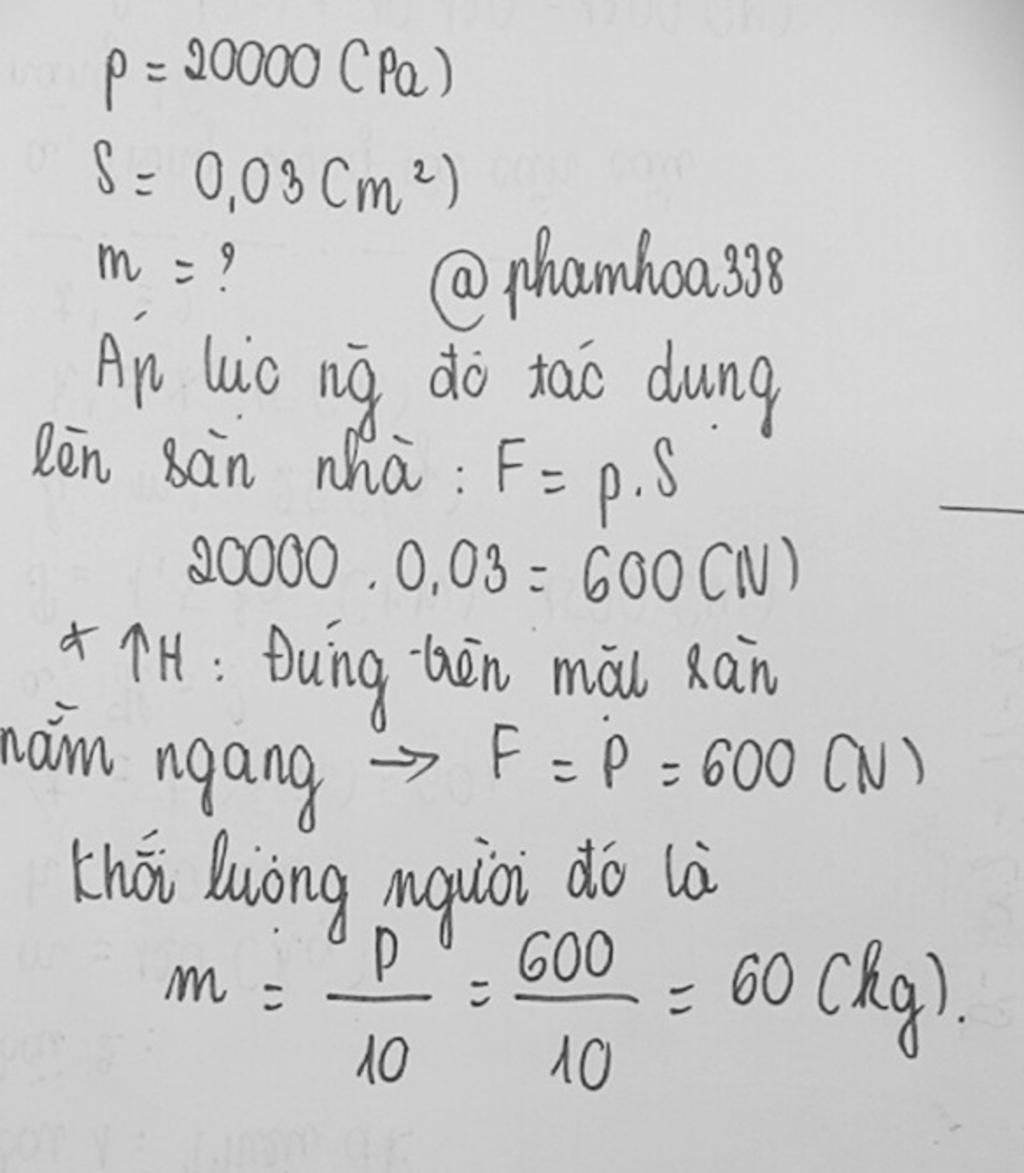 p = 20000 (Pa)
S = 0,03 (m²)
m = ?
@phamhoa338
Áp lực ng̃ đó tác dụng
lên sàn nhà : F = p.S
20000 . 0,03 = 600 (N)
* TH : Đứng trên mặt sàn
nằm ngang → F = P = 600 (N)
Khối lượng người đó là
m = P/10 = 600/10 = 60 (kg).